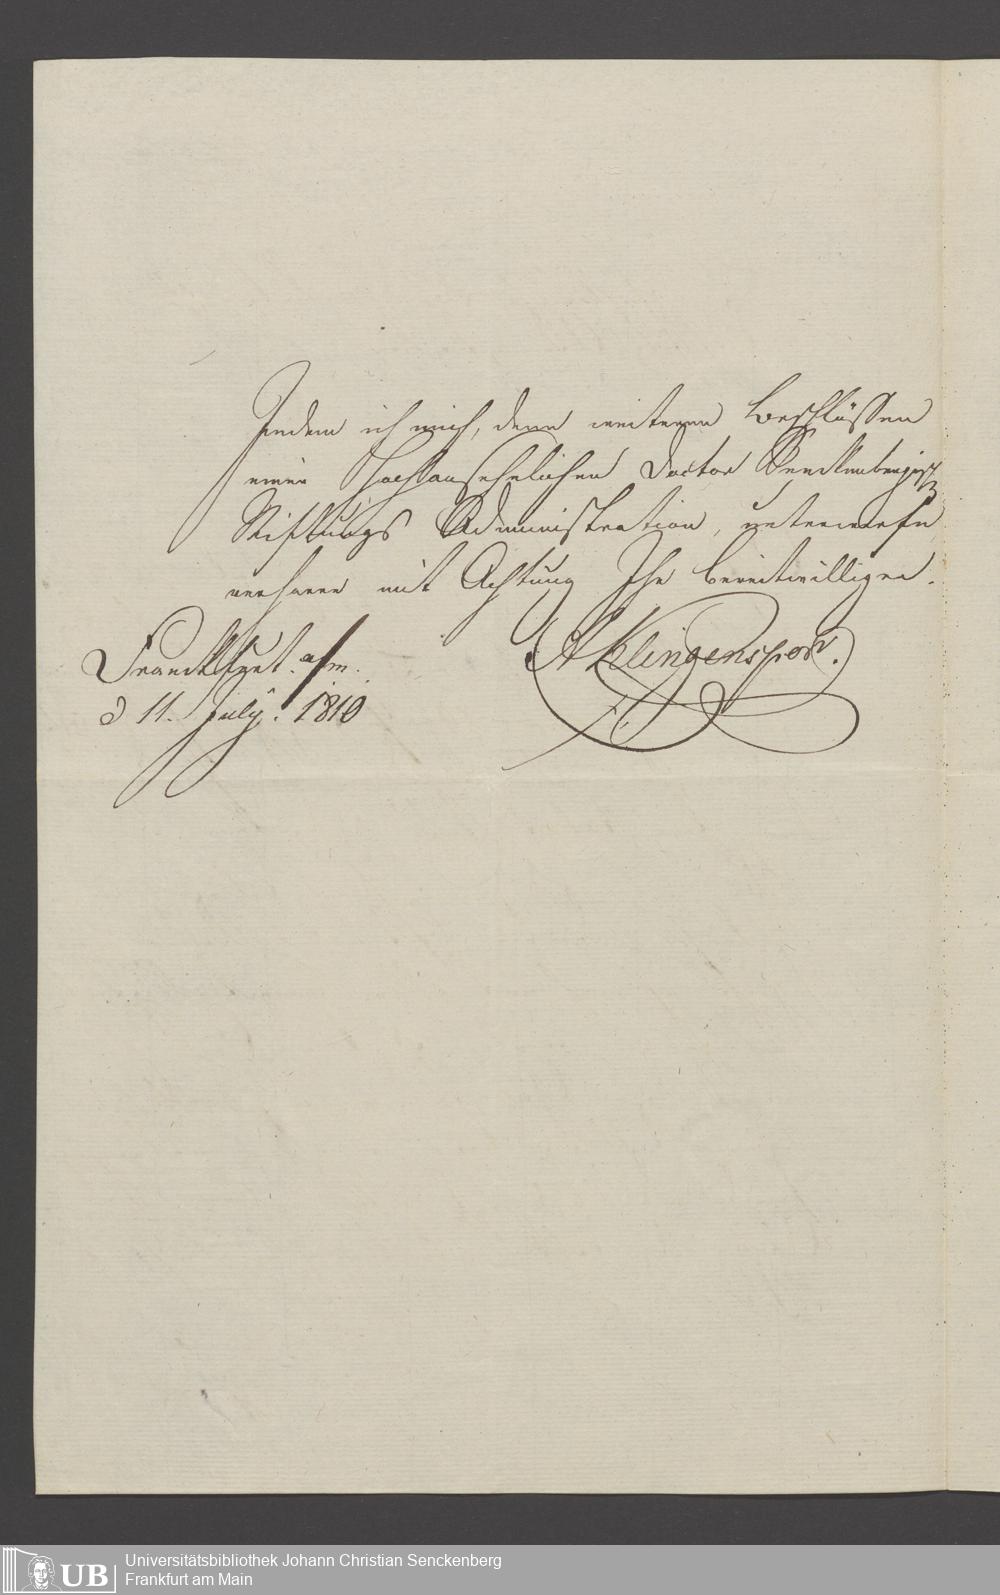 Indem ich mich, denn weiteren Beschlüssen
einer Hochansehnlichen Doctor Senckenbergisch
Stiftungs Administration, unterwerfe
verharre mit Achtung Ihr bereitwilliger.
A Klingenspor.
Franckfurt. a/m.
d 11. July. 1810
Universitätsbibliothek Johann Christian Senckenberg
Frankfurt am Main
UB